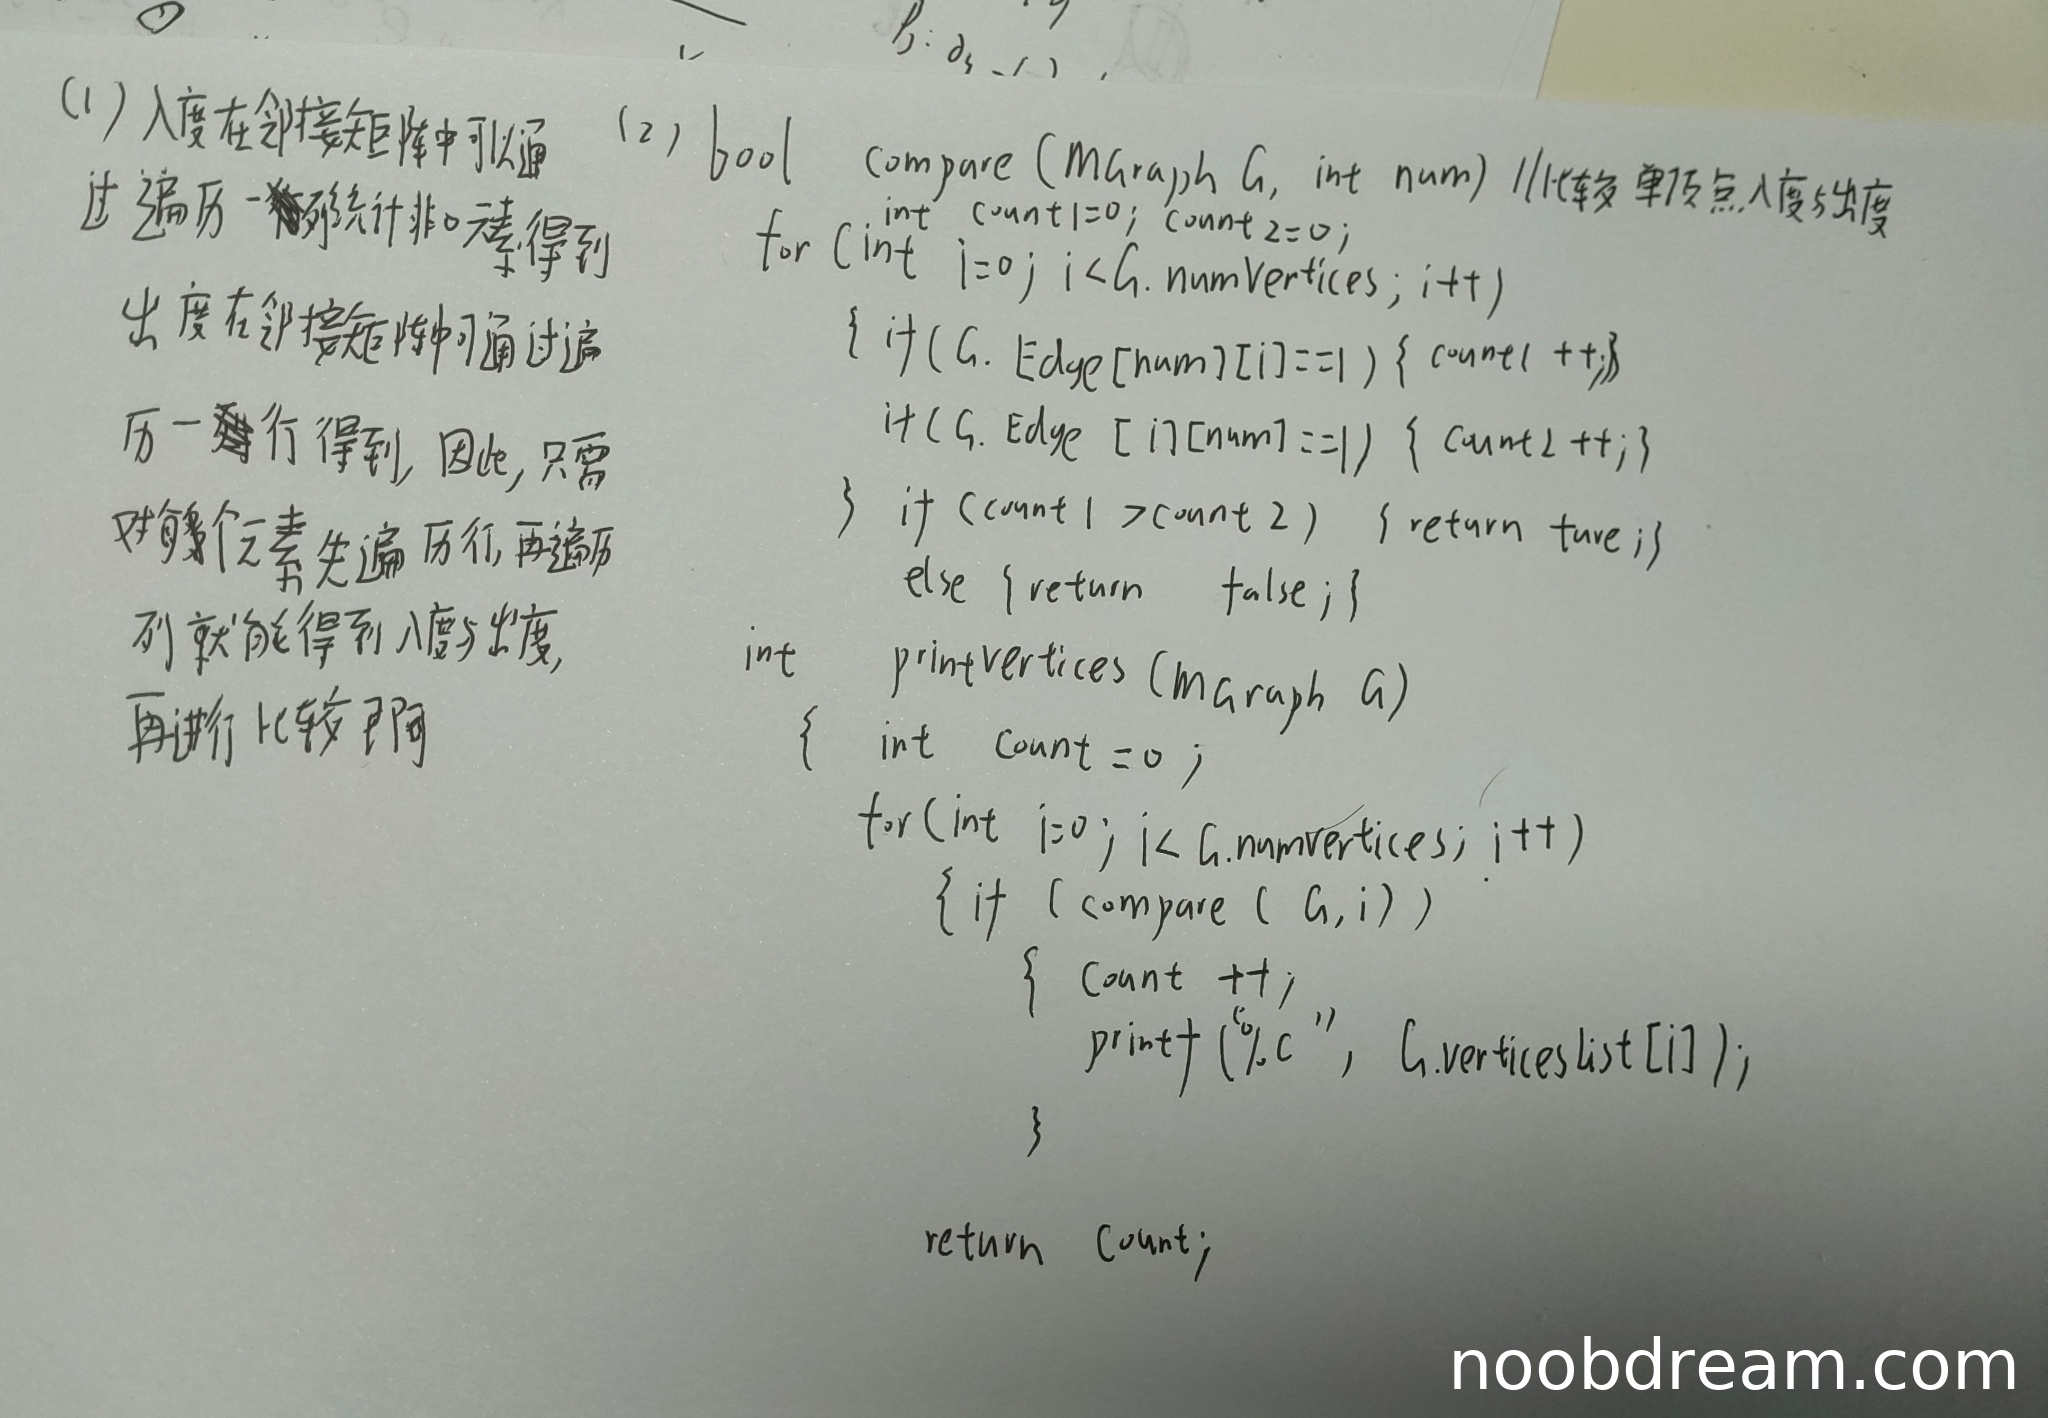 (1) 入度在邻接矩阵中可以通
过遍历一列统计非0元素得到
出度在邻接矩阵中可通过遍
历一行得到, 因此, 只需
对每个元素先遍历行, 再遍历
列就能得到入度与出度,
再进行比较即可
(2) bool compare (MGraph G, int num) //比较单顶点入度与出度
int count1=0; count2=0;
for (int i=0; i<G.numVertices; i++)
{ if (G.Edge[num][i]==1) { count1 ++;}
if (G.Edge [i][num]==1) { count2 ++;}
} if (count1 >count2) { return ture;}
else {return false;}
int printVertices (MGraph G)
{ int count =0;
for (int i=0; i< G.numvertices; i++)
{ if (compare (G,i))
{ count ++;
printf ("%c", G.verticeslist[i]);
}
return count;
noobdream.com